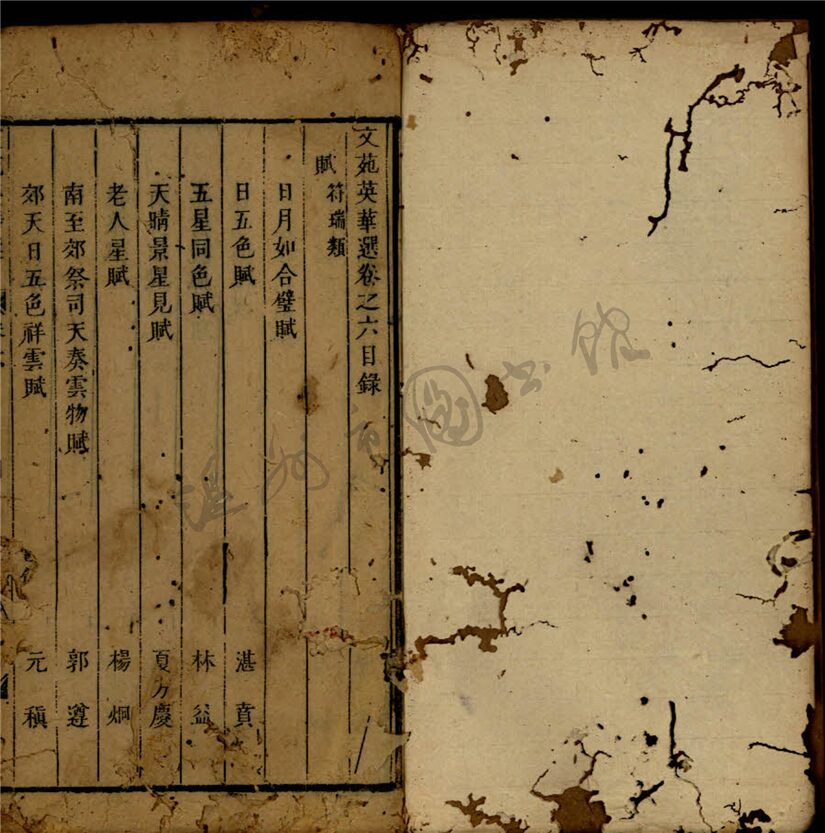 文苑英華選卷之六目錄
賦 符瑞類
日月如合璧賦
日五色賦 湛賁
五星同色賦 林益
天晴景星見賦 夏方慶
老人星賦 楊炯
南至郊祭司天奏雲物賦 郭遵
郊天日五色祥雲賦 元稹
溫州市圖書館